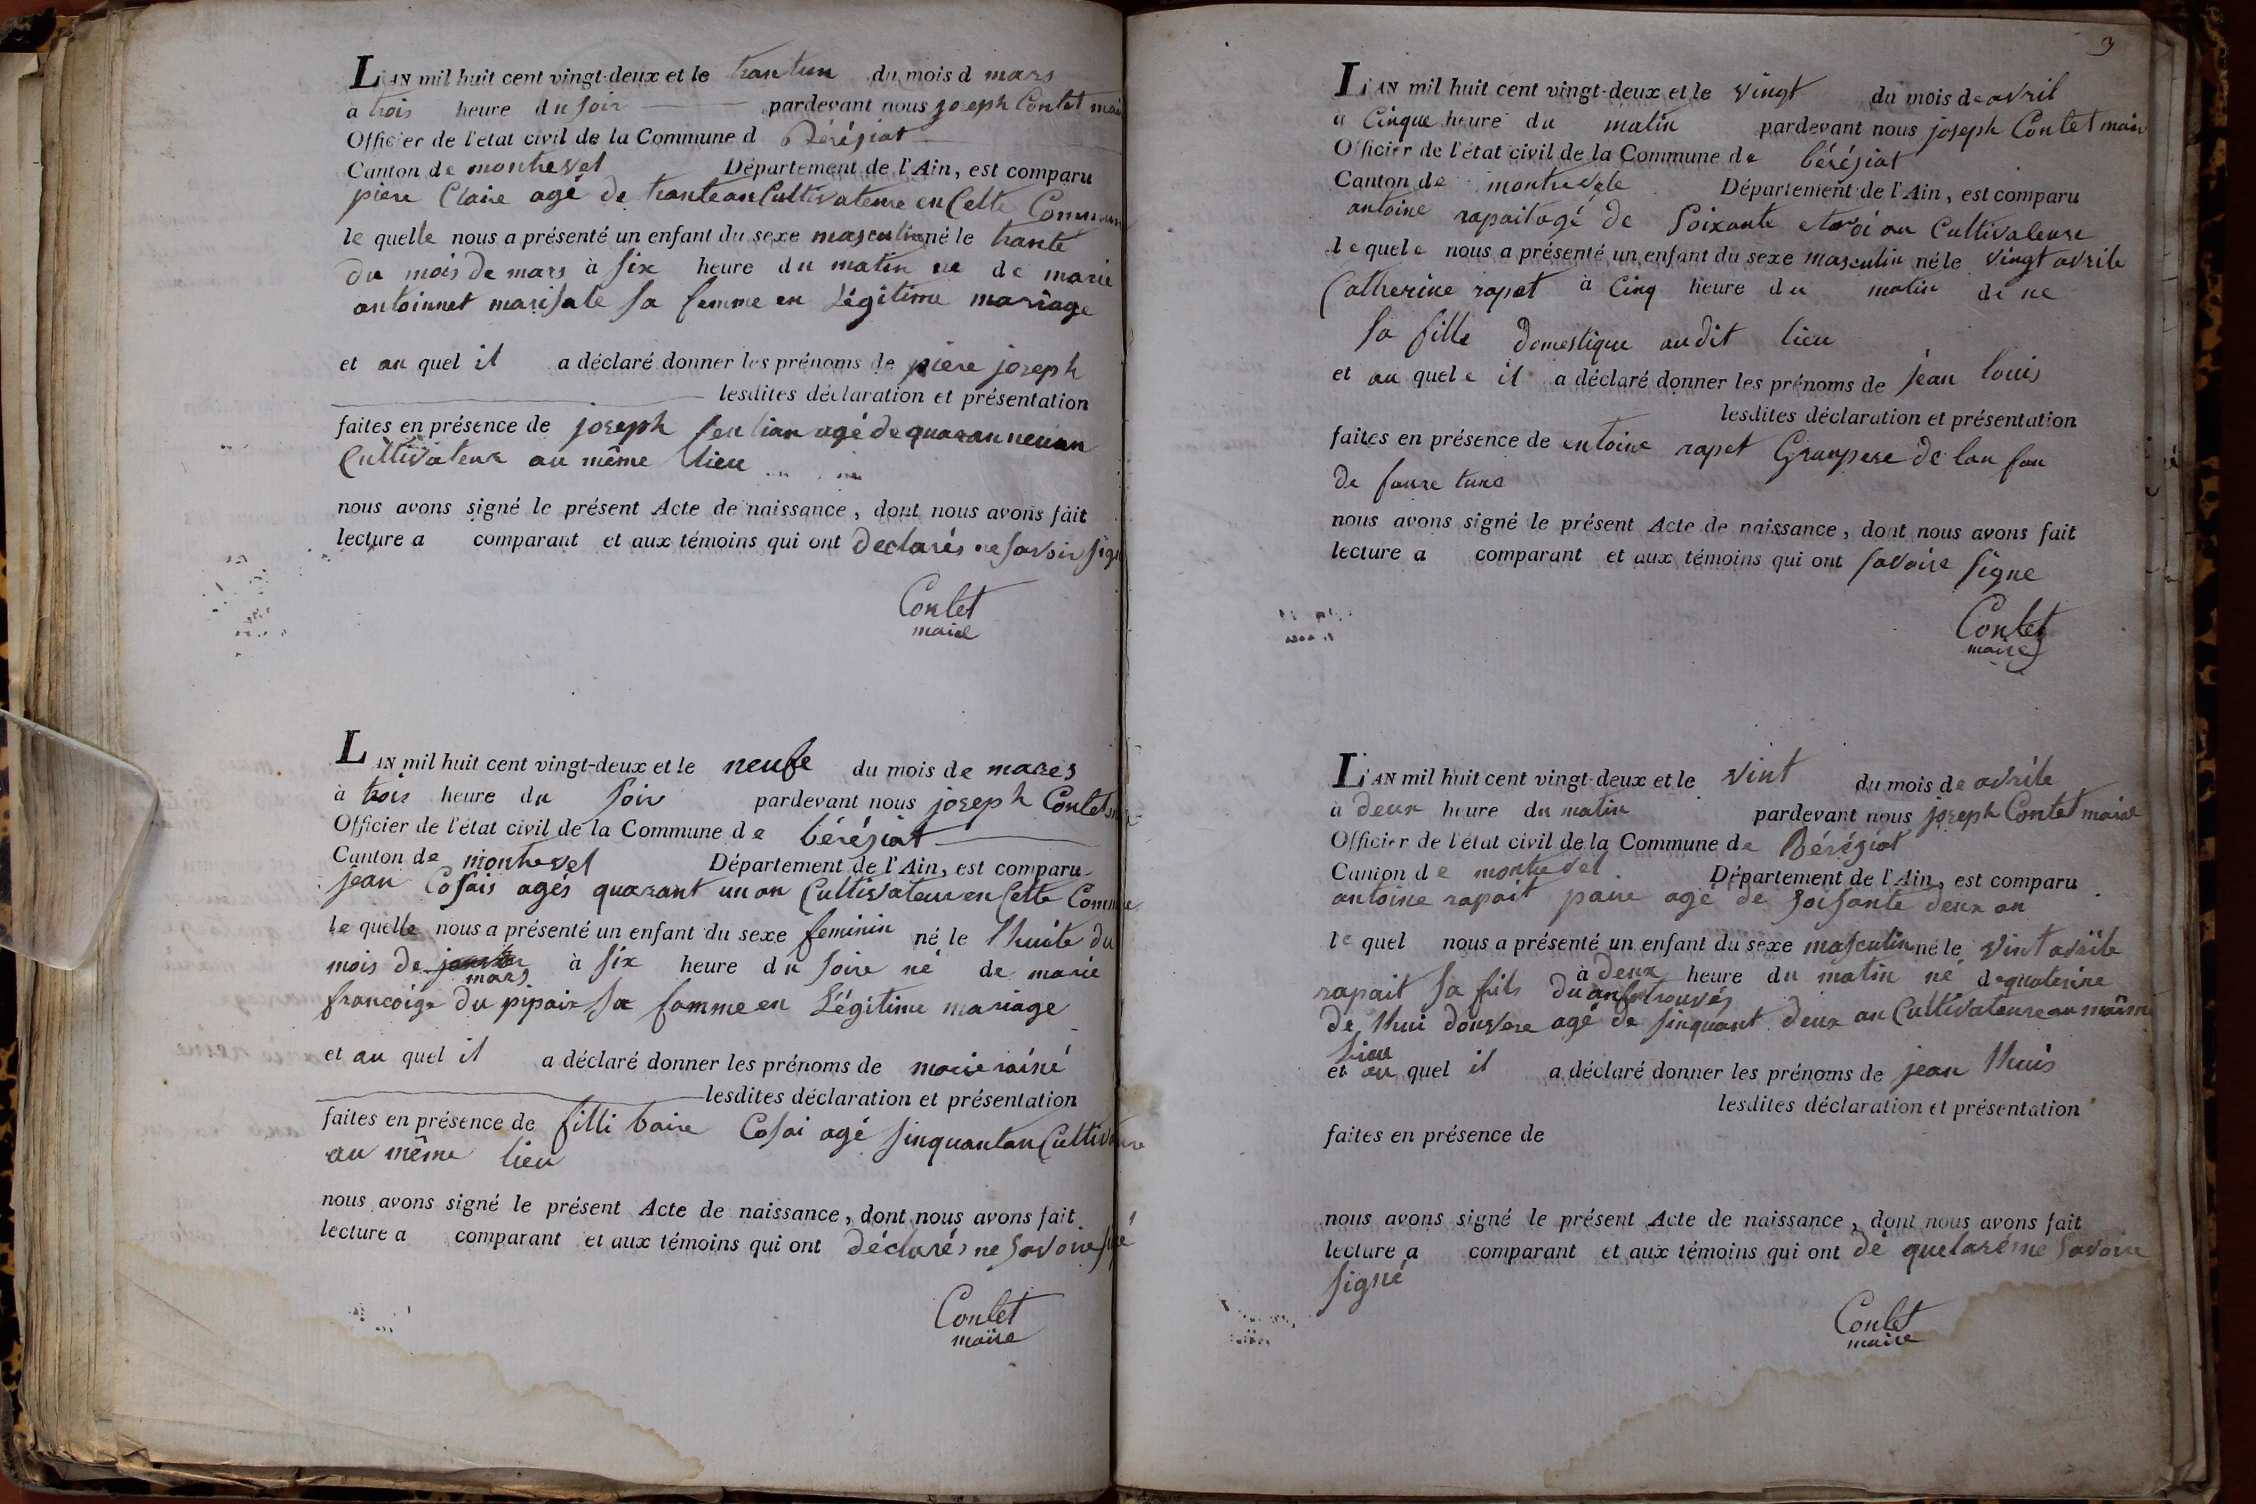 L'AN mil huit cent vingt-deux et le trantun du mois d mars
a trois heure du soir pardevant nous joseph Contet mai
Officier de l'état civil de la Commune d Bérésiat
Canton de montrevel Département de l'Ain, est comparu
piere Claire agé de trante an Cultivateure en Cette Commun
le quelle nous a présenté un enfant du sexe masculin né le trante
du mois de mars à six heure du matin ne de marie
antoinnet marisale sa femme en Légitime mariage
et au quel il a déclaré donner les prénoms de piere joseph
lesdites déclaration et présentation
faites en présence de joseph agé de quaran neuu an
Cultivateur au même lieu
nous avons signé le présent Acte de naissance, dont nous avons fait
lecture a comparant et aux témoins qui ont declarés ne savoir sign
Contet
maire
L'AN mil huit cent vingt-deux et le neufe du mois de mares
à trois heure du soir pardevant nous joseph Contet
Officier de l'état civil de la Commune de bérésiat
Canton de montrevel Département de l'Ain, est comparu
jean Cosais agés quarant un an Cultivateur en Cette Commune
le quelle nous a présenté un enfant du sexe feminin né le lhuite du
mois de mars à six heure du soire né de marie
francoise du pipair sa famme en Légitime mariage
et au quel il a déclaré donner les prénoms de marie rainé
lesdites déclaration et présentation
faites en présence de filli baire Cosai agé sinquantan Cultivature
au même lieu
nous avons signé le présent Acte de naissance, dont nous avons fait
lecture a comparant et aux témoins qui ont déclarés ne savoire
Contet
maire
3
L'AN mil huit cent vingt-deux et le vingt du mois de avril
a Cinque heure du matin pardevant nous joseph Contet mair
Officier de l'état civil de la Commune de bérésiat
Canton de montrevele Département de l'Ain, est comparu
antoine rapait agé de soixante et troi an Cultivateure
lequele nous a présenté un enfant du sexe masculin né le vingt avrile
Catherine rapet à Cinq heure du matin de ne
sa fille domestique audit lieu
et au quele il a déclaré donner les prénoms de jean louis
lesdites déclaration et présentation
faites en présence de entoine rapet Granpere de lan fan
de faure tune
nous avons signé le présent Acte de naissance, dont nous avons fait
lecture a comparant et aux témoins qui ont savoire signe
Contet
maire
L'AN mil huit cent vingt-deux et le vint du mois de avrile
à deux heure du matin pardevant nous joseph Contet maire
Officier de l'état civil de la Commune de Bérésiat
Canton de montrevel Département de l'Ain, est comparu
antoine rapait paire agé de soisante deux an
le quel nous a présenté un enfant du sexe masculin né le vint avrile
à deux heure du matin né dequaterine
rapait sa fils du anf trouvés
de lhui douvere agé de sinquant deux an Cultivateure au maime
lieu
et au quel il a déclaré donner les prénoms de jean lhuis
lesdites déclaration et présentation
faites en présence de
nous avons signé le présent Acte de naissance, dont nous avons fait
lecture a comparant et aux témoins qui ont dé quelaré ne savoire
signé
Contet
maire